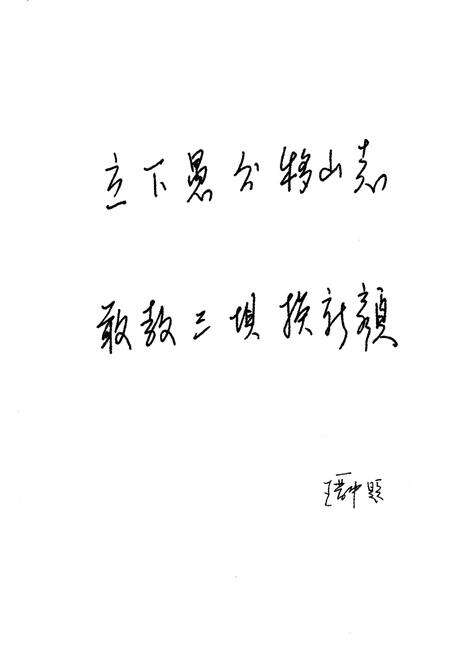 立下愚公移山志
敢教三坝换新颜
王 中题